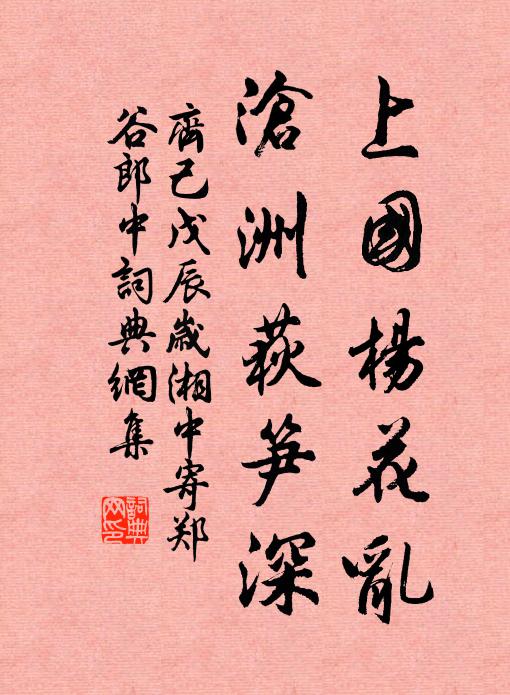 上國楊花亂
滄洲荻笋深
齊己戊辰歲湘中寄郑
谷郎中詞典網集
詞典
网印